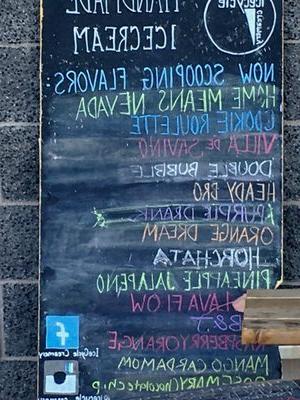 HANDMADE
ICECREAM
NOW SCOOPING FLAVORS:
HOME MEANS NEVADA
COOKIE ROULETTE
VILLA DE SAVINO
DOUBLE BUBBLE
HEADY BRO
A PURPLE DRANK
ORANGE DREAM
HORCHATA
PINEAPPLE JALAPENO
LAVA FLOW
B&J
RASPBERRY ORANGE
IceCycle Creamery
MANGO CARDAMOM
ROSEMARY Chocolate chip
@icecycle creamery